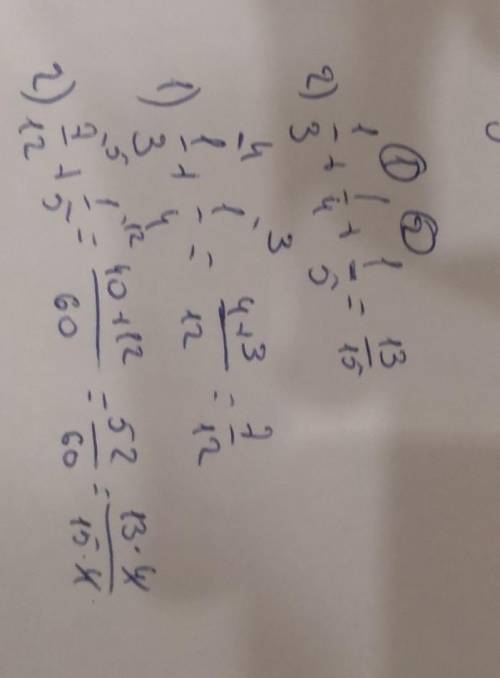 ① ②
2) 1/3 + 1/4 + 1/5 = 13/15
1) 1/3 ·4 + 1/4 ·3 = 4+3/12 = 7/12
2) 7/12 ·5 + 1/5 ·12 = 40+12/60 = 52/60 = 13·4/15·4